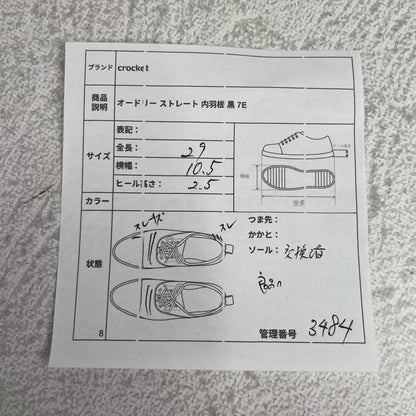 ブランド crocket
商品説明 オードリー ストレート 内羽根 黒 7E
サイズ
表記：
全長： 29
横幅： 10.5
ヒール高さ： 2.5
ヒール高さ
横幅
全長
カラー
状態
スレ キズ スレ
つま先：
かかと：
ソール： 交換済
8
管理番号 3484